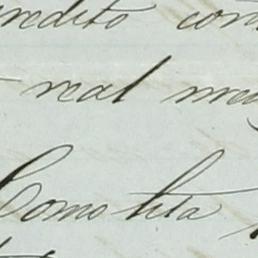 credito con
real me
Como lita